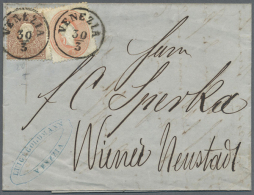 VENEZIA
30
3
VENEZIA
30
3
Herrn
J C Sperka
Wiener Neustadt
VENEZIA